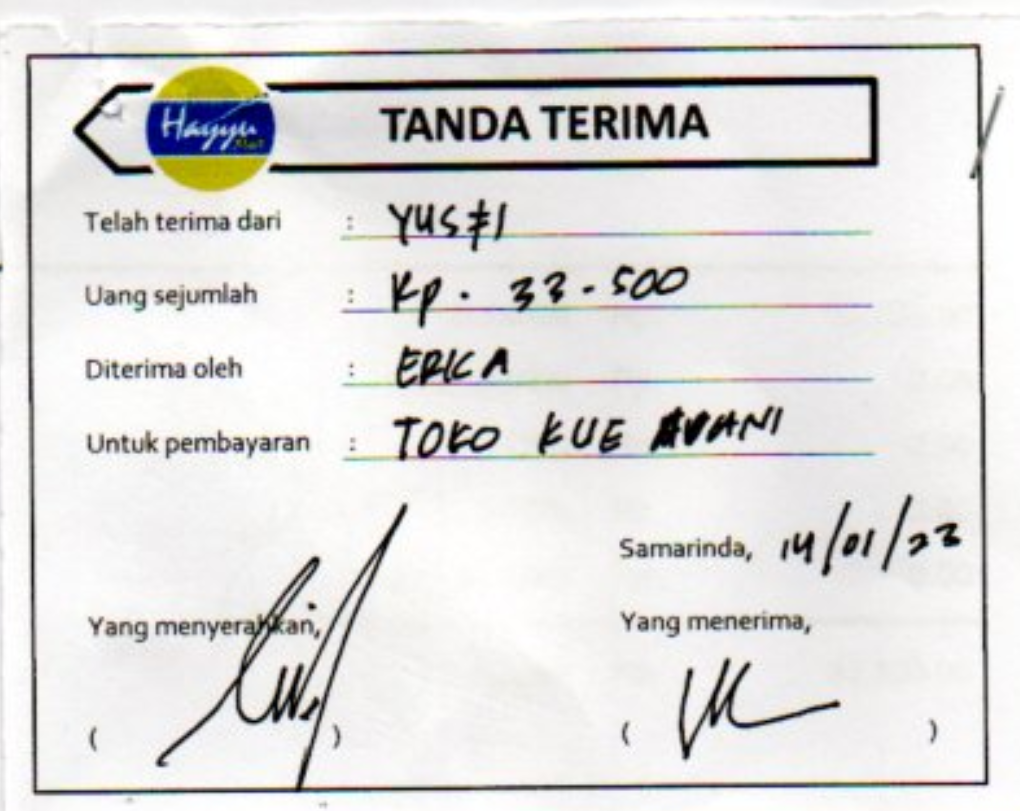 Hayyu Mart
TANDA TERIMA
Telah terima dari : YUSFI
Uang sejumlah : Rp. 33.500
Diterima oleh : ERICA
Untuk pembayaran : TOKO KUE
Samarinda, 14/01/23
Yang menyerahkan, Yang menerima,
( ) ( )